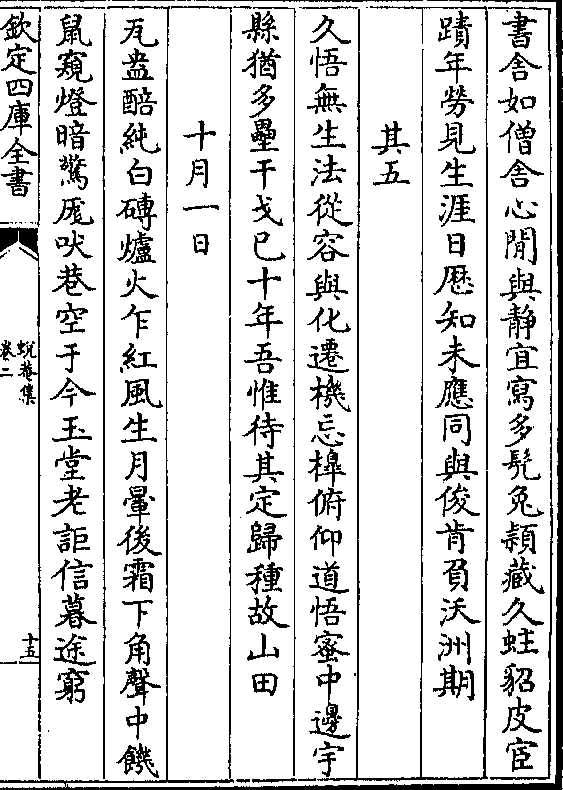 書舍如僧舍心閒與静宜寫多髠兔頴藏久蛀貂皮宦
蹟年勞見生涯日厯知未應同與俊肯負沃洲期
其五
久悟無生法從容與化遷機忘槔俯仰道悟蜜中邊宇
縣猶多壘干戈已十年吾惟待其定歸種故山田
十月一日
瓦盎醅純白磚爐火乍紅風生月暈後霜下角聲中饑
鼠窺燈暗驚厖吠巷空于今玉堂老詎信暮途窮
欽定四庫全書
蜕菴集
卷二
十五